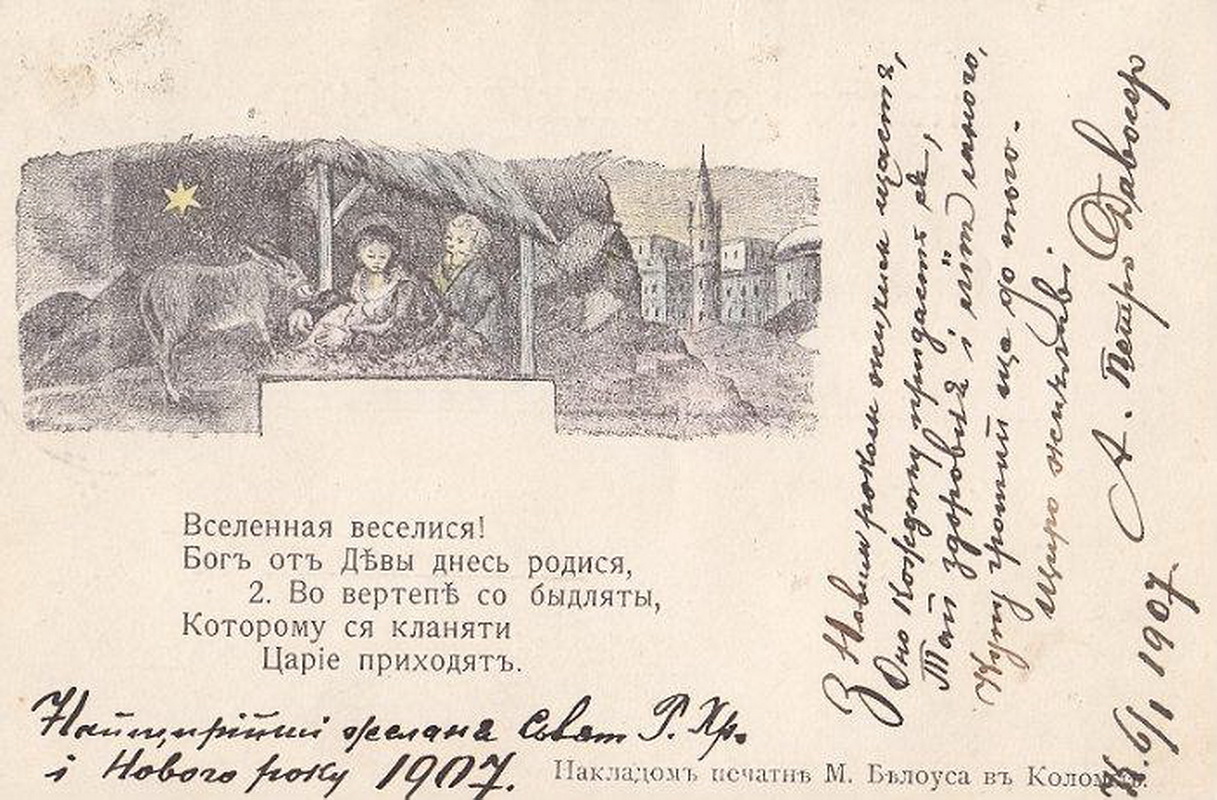 Вселенная веселися!
Богъ отъ Дѣвы днесь родися,
2. Во вертепѣ со быдляты,
Которому ся кланяти
Царіе приходятъ.
Найщирійші желаня Сьвят Р. Хр.
і Нового року 1907.
Накладомъ печатнѣ М. Бѣлоуса въ
З Новим роком жичим щастя,
Оно кождому придасть ся,
Тай здоровля і літ много,
Купу гроший ще до того.
Щиро жичливі
А. Петро
К. 6/1 1907